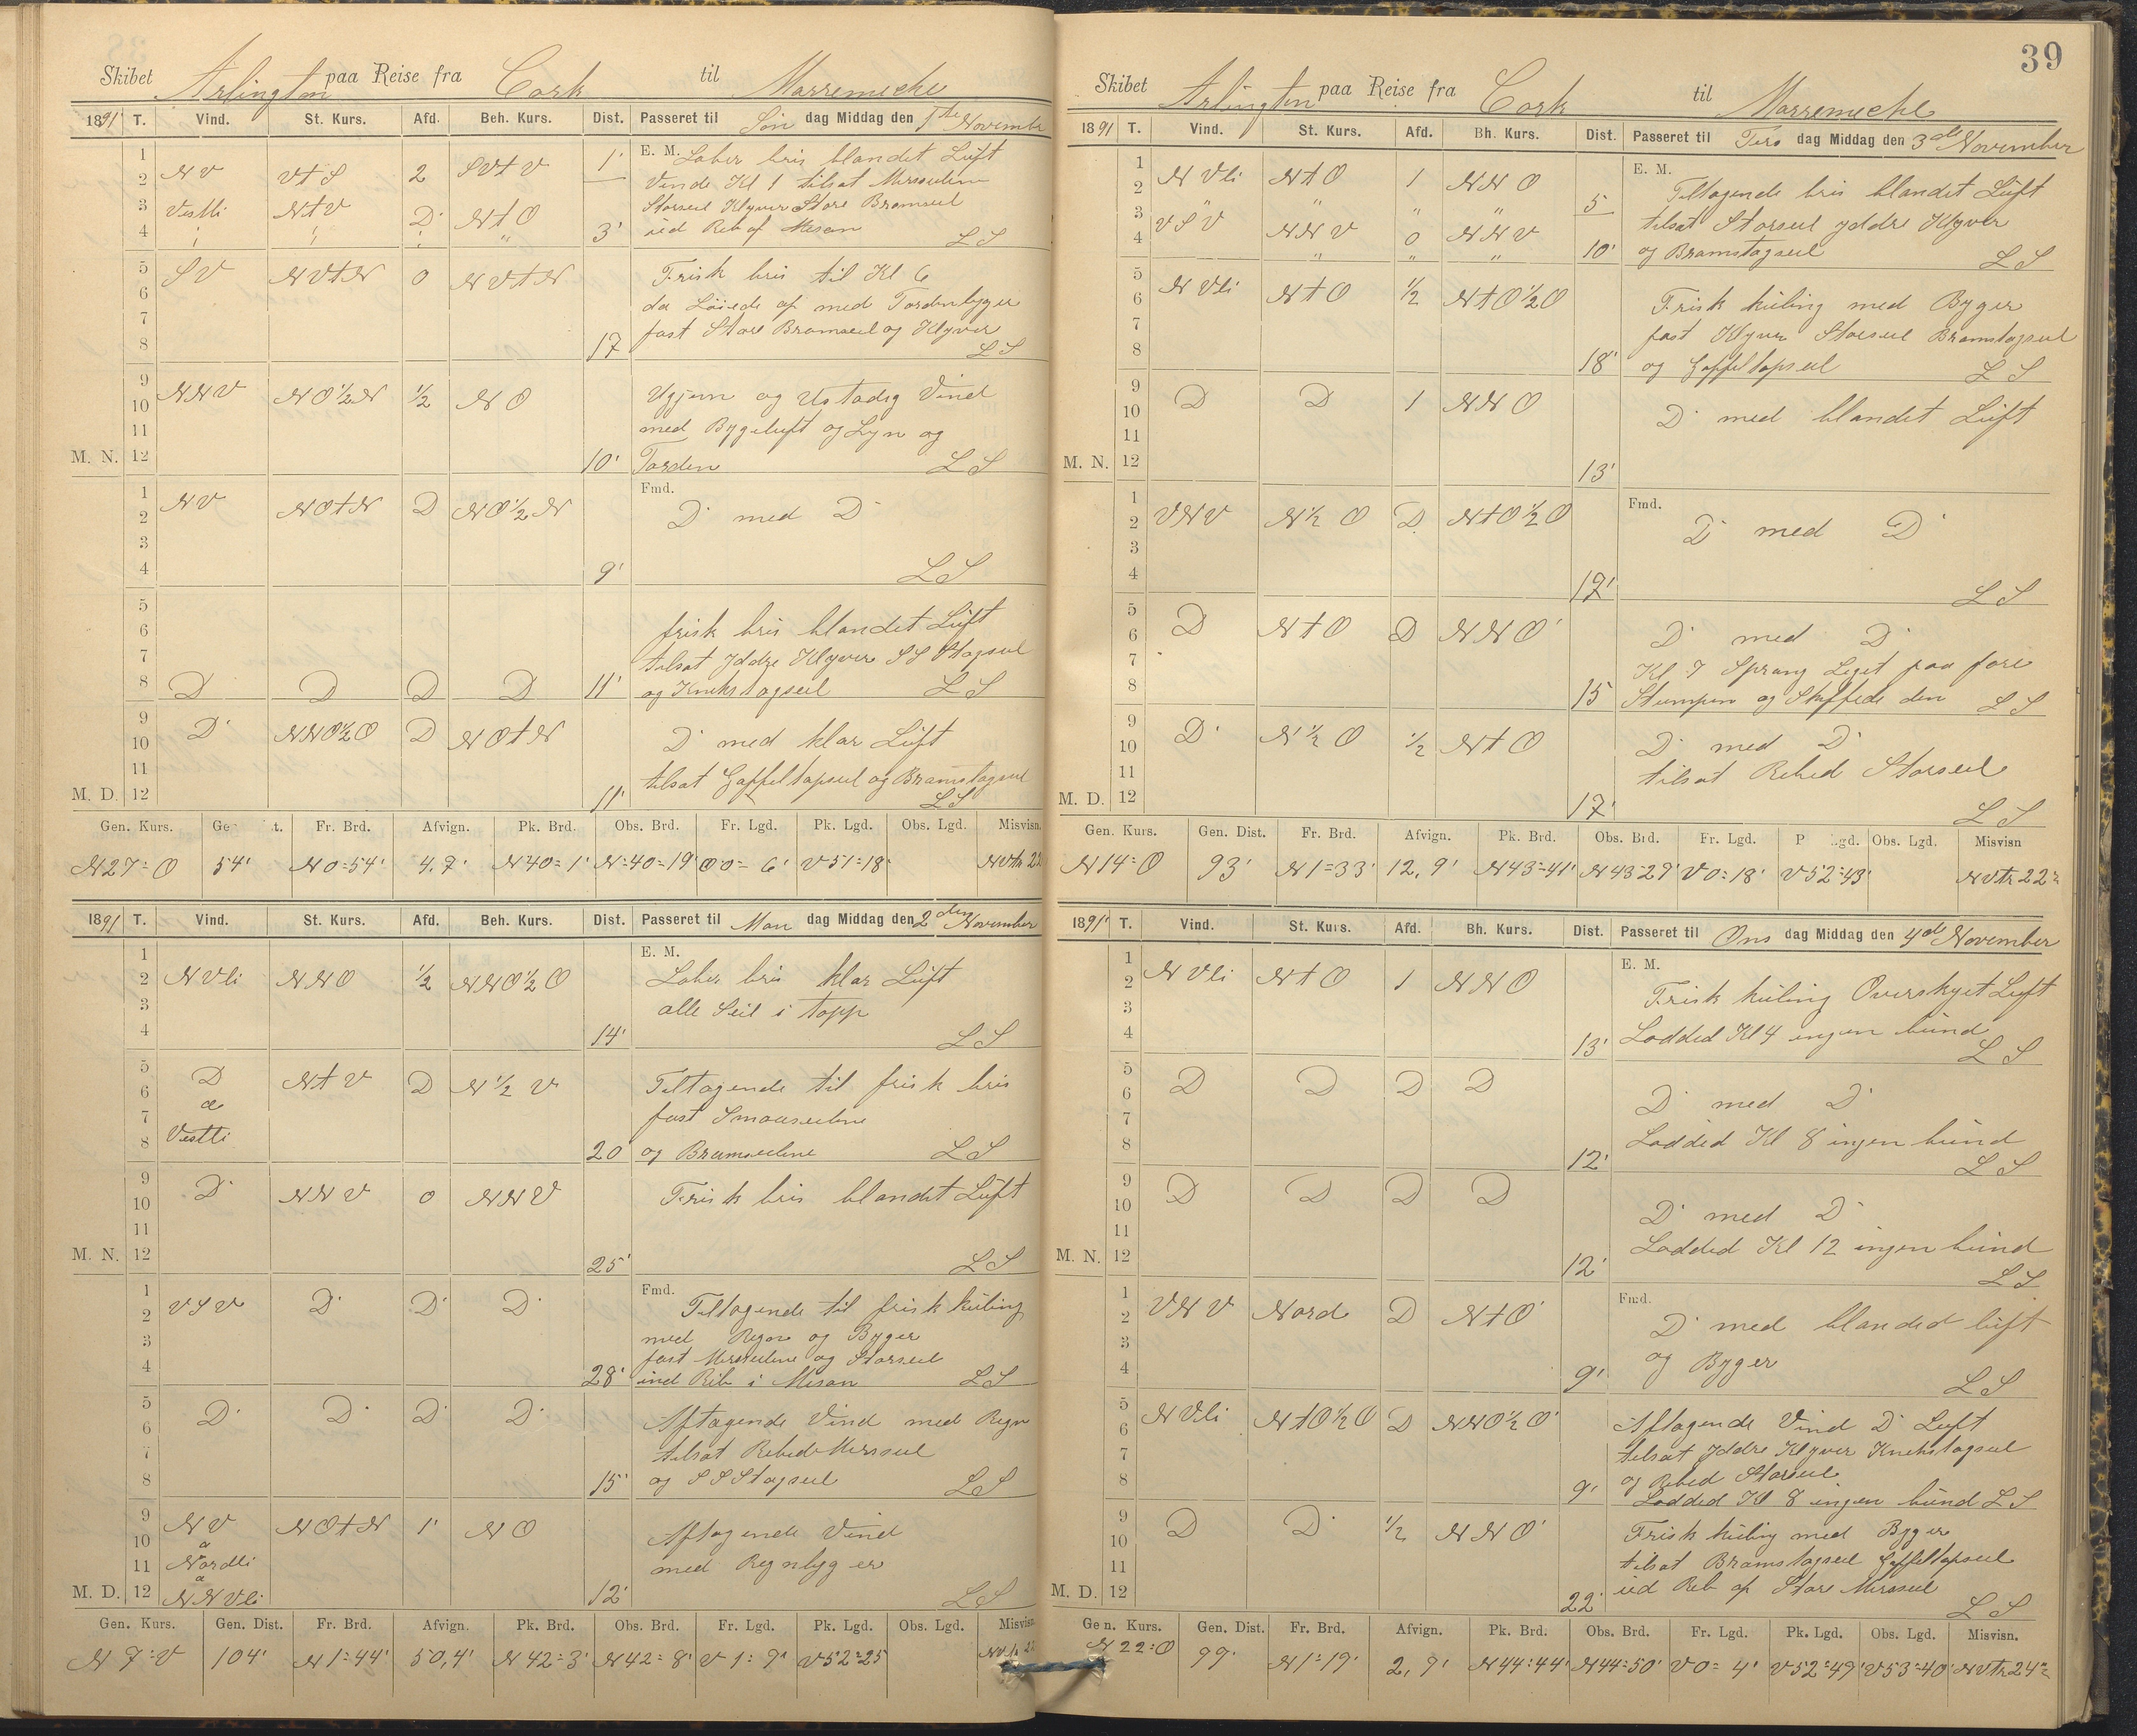 Skibet Arlington paa Reise fra Cork til Marremeche
1891 T. Vind. St. Kurs. Afd. Beh. Kurs. Dist. Passeret til Søn dag Middag den 1ste November
E. M.
1 2 3 4
NV VtS 2 SVtV 1'
Vestli NtV D NtO 3'
Laber bris blandet Luft
Vende Kl 1 tilsat Mersseilene
Storseil Klyver Store Bramseil
ud Reb af Mesan LS
5 6 7 8
SV NVtN 0 NVtN 17
Frisk bris til Kl 6
da Løiede af med Tordenbyger
fast Store Bramseil og Klyver
LS
9 10 11 M. N. 12
NNV NO½N ½ NO 10'
Ugjevn og Ustadig Vind
med Bygeluft og Lyn og
Torden LS
Fmd.
1 2 3 4
NV NOtN D NO½N 9'
D med D
LS
5 6 7 8
D D D D 11'
frisk bris blandet Luft
tilsat Yddre Klyver SS Stagseil
og Knekstagseil LS
9 10 11 M. D. 12
D NNO½O D NOtN 11'
D med klar Luft
tilsat Gaffeltopseil og Bramstagseil
LS
Gen. Kurs. Ge t. Fr. Brd. Afvign. Pk. Brd. Obs. Brd. Fr. Lgd. Pk. Lgd. Obs. Lgd. Misvisn.
N27=O 54' N0=54' 4.7' N40=1' N=40=19' O0=6' V51=18' NVtr 22
1891 T. Vind. St. Kurs. Afd. Beh. Kurs. Dist. Passeret til Man dag Middag den 2den November
E. M.
1 2 3 4
NVli NNO ½ NNO½O 14'
Laber bris klar Luft
alle Seil i topp
LS
5 6 7 8
D a Vestli NtV D N½V 20
Tiltagende til frisk bris
fast Smaaseilene
og Bramseilene LS
9 10 11 M. N. 12
D NNV 0 NNV 25'
Frisk bris blandet Luft
LS
Fmd.
1 2 3 4
VSV D D D 28'
Tiltagende til frisk kuling
med Regn og Byger
fast Mersseilene og Storseil
ind Reb i Mesan LS
5 6 7 8
D D D D 15'
Aftagende Vind med Regn
tilsat Rebede Mersseil
og SS Stagseil LS
9 10 11 M. D. 12
NV a Nordli a NNVli NOtN 1' NO 12'
Aftagende Vind
med Regnbyger
LS
Gen. Kurs. Gen. Dist. Fr. Brd. Afvign. Pk. Brd. Obs. Brd. Fr. Lgd. Pk. Lgd. Obs. Lgd. Misvisn
N7=V 104' N1=44' 50,4' N42=3' N42=8' V1=9' V52=25'
39
Skibet Arlington paa Reise fra Cork til Marremeche
1891 T. Vind. St. Kurs. Afd. Bh. Kurs. Dist. Passeret til Tirs dag Middag den 3de November
E. M.
1 2 3 4
NVli NtO 1 NNO 5
VSV NNV 0 NNV 10'
Tiltagende bris blandet Luft
tilsat Storseil yddre Klyver
og Bramstagseil LS
5 6 7 8
NVli NtO ½ NtO½O 18'
Frisk kuling med Byger
fast Klyver Storseil Bramstagseil
og Gaffeltopseil LS
9 10 11 M. N. 12
D D 1 NNO 13'
D med blandet Luft
Fmd.
1 2 3 4
VNV N½O D NtO½O 12'
D med D
LS
5 6 7 8
D NtO D NNO 15
D med D
Kl 7 Sprang Liget paa fore
Stumpen og Skiftede den LS
9 10 11 M. D. 12
D N½O ½ NtO 17'
D med D
tilsat Rebed Storseil
LS
Gen. Kurs. Gen. Dist. Fr. Brd. Afvign. Pk. Brd. Obs. Brd. Fr. Lgd. P gd. Obs. Lgd. Misvisn
N14=O 93' N1=33' 12,9' N43=41' N43 29' V0=18' V52=43' NVtr 22
1891 T. Vind. St. Kurs. Afd. Bh. Kurs. Dist. Passeret til Ons dag Middag den 4de November
E. M.
1 2 3 4
NVli NtO 1 NNO 13'
Frisk kuling Overskyet Luft
Lodded Kl 4 ingen bund
LS
5 6 7 8
D D D D 12'
D med D
Lodded Kl 8 ingen bund
LS
9 10 11 M. N. 12
D D D D 12'
D med D
Lodded Kl 12 ingen bund
LS
Fmd.
1 2 3 4
VNV Nord D NtO 9'
D med blanded luft
og Byger
LS
5 6 7 8
NVli NtO½O D NNO½O 9'
Aftagende Vind D Luft
tilsat Yddre Klyver Knekstagseil
og Rebed Storseil
Lodded Kl 8 ingen bund LS
9 10 11 M. D. 12
D D ½ NNO 22'
Frisk kuling med Byger
tilsat Bramstagseil Gaffeltopseil
ud Reb af Store Mersseil
LS
Gen. Kurs. Gen. Dist. Fr. Brd. Afvign. Pk. Brd. Obs. Brd. Fr. Lgd. Pk. Lgd. Obs. Lgd. Misvisn.
N22=O 99' N1=19' 2,9' N44=44' N44=50' V0=4' V52=49' V53=40' NVtr 24